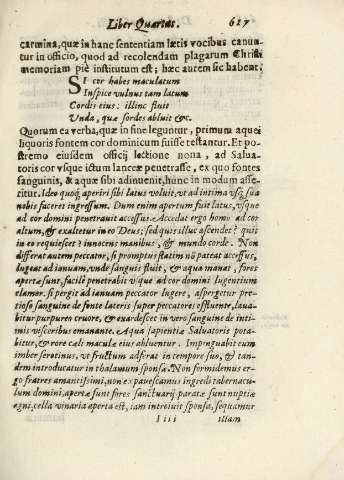 Liber Quartus. 627
carmina, quæ in hanc sententiam lætis vocibus canun-
tur in officio, quod ad recolendam plagarum Christi
memoriam piè institutum est; hæc autem sic habent:
Si cor habes maculatum
Inspice vulnus tam latum
Cordis eius: illinc fluit
Unda, quæ sordes abluit &c.
Quorum ea verba, quæ in fine leguntur, primum aquei
liquoris fontem cor dominicum fuisse testantur. Et po-
stremo eiusdem officij lectione nona, ad Salua-
toris cor vsque ictum lanceæ penetrasse, ex quo fontes
sanguinis, & aquæ sibi adinuenit, hunc in modum asse-
ritur. Ideo quoq; aperiri sibi latus voluit, vt ad intima vsq; sua
nobis faceret ingressum. Dum enim apertum fuit latus, vsque
ad cor domini penetrauit accessus. Accedat ergo homo ad cor
altum, & exaltetur in eo Deus; sed quis illuc ascendet? quis
in eo requiescet? innocens manibus, & mundo corde. Non
differat autem peccator, si promptus statim nō pateat accessus,
lugeat ad ianuam, vnde sanguis fluit, & aqua manat, fores
apertæ sunt, facilè penetrabit vsque ad cor domini lugentium
clamor. si pergit ad ianuam peccator lugere, aspergetur pre-
tioso sanguine de fonte lateris Saluatoris copiosè effluente, laua-
bitur purpureo cruore, & exardescet in vero sanguine de inti-
mis visceribus emanante. Aqua sapientiæ Saluatoris pota-
bitur, & rore cæli maculæ eius abluentur. Impinguabit eum
imber serotinus, vt fructum adferat in tempore suo, & tan-
dem introducatur in thalamum sponsæ. Non formidemus er-
go fratres amantissimi, non expauescamus ingredi tabernacu-
lum domini, apertæ sunt fores sanctuarij paratæ sunt nuptiæ
agni, cella vinaria aperta est, iam introiuit sponsa, sequamur
Iiii illam